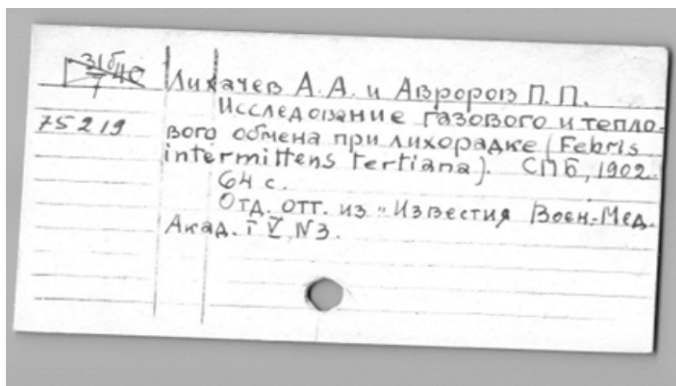 31б 40
7
Лихачев А.А. и Авроров П.П.
Исследование газового и тепло-
75219
вого обмена при лихорадке (Febris
intermittens tertiana). СПБ, 1902.
64 с.
Отд. отт. из "Известия Воен-Мед.
Акад. т V, N3.